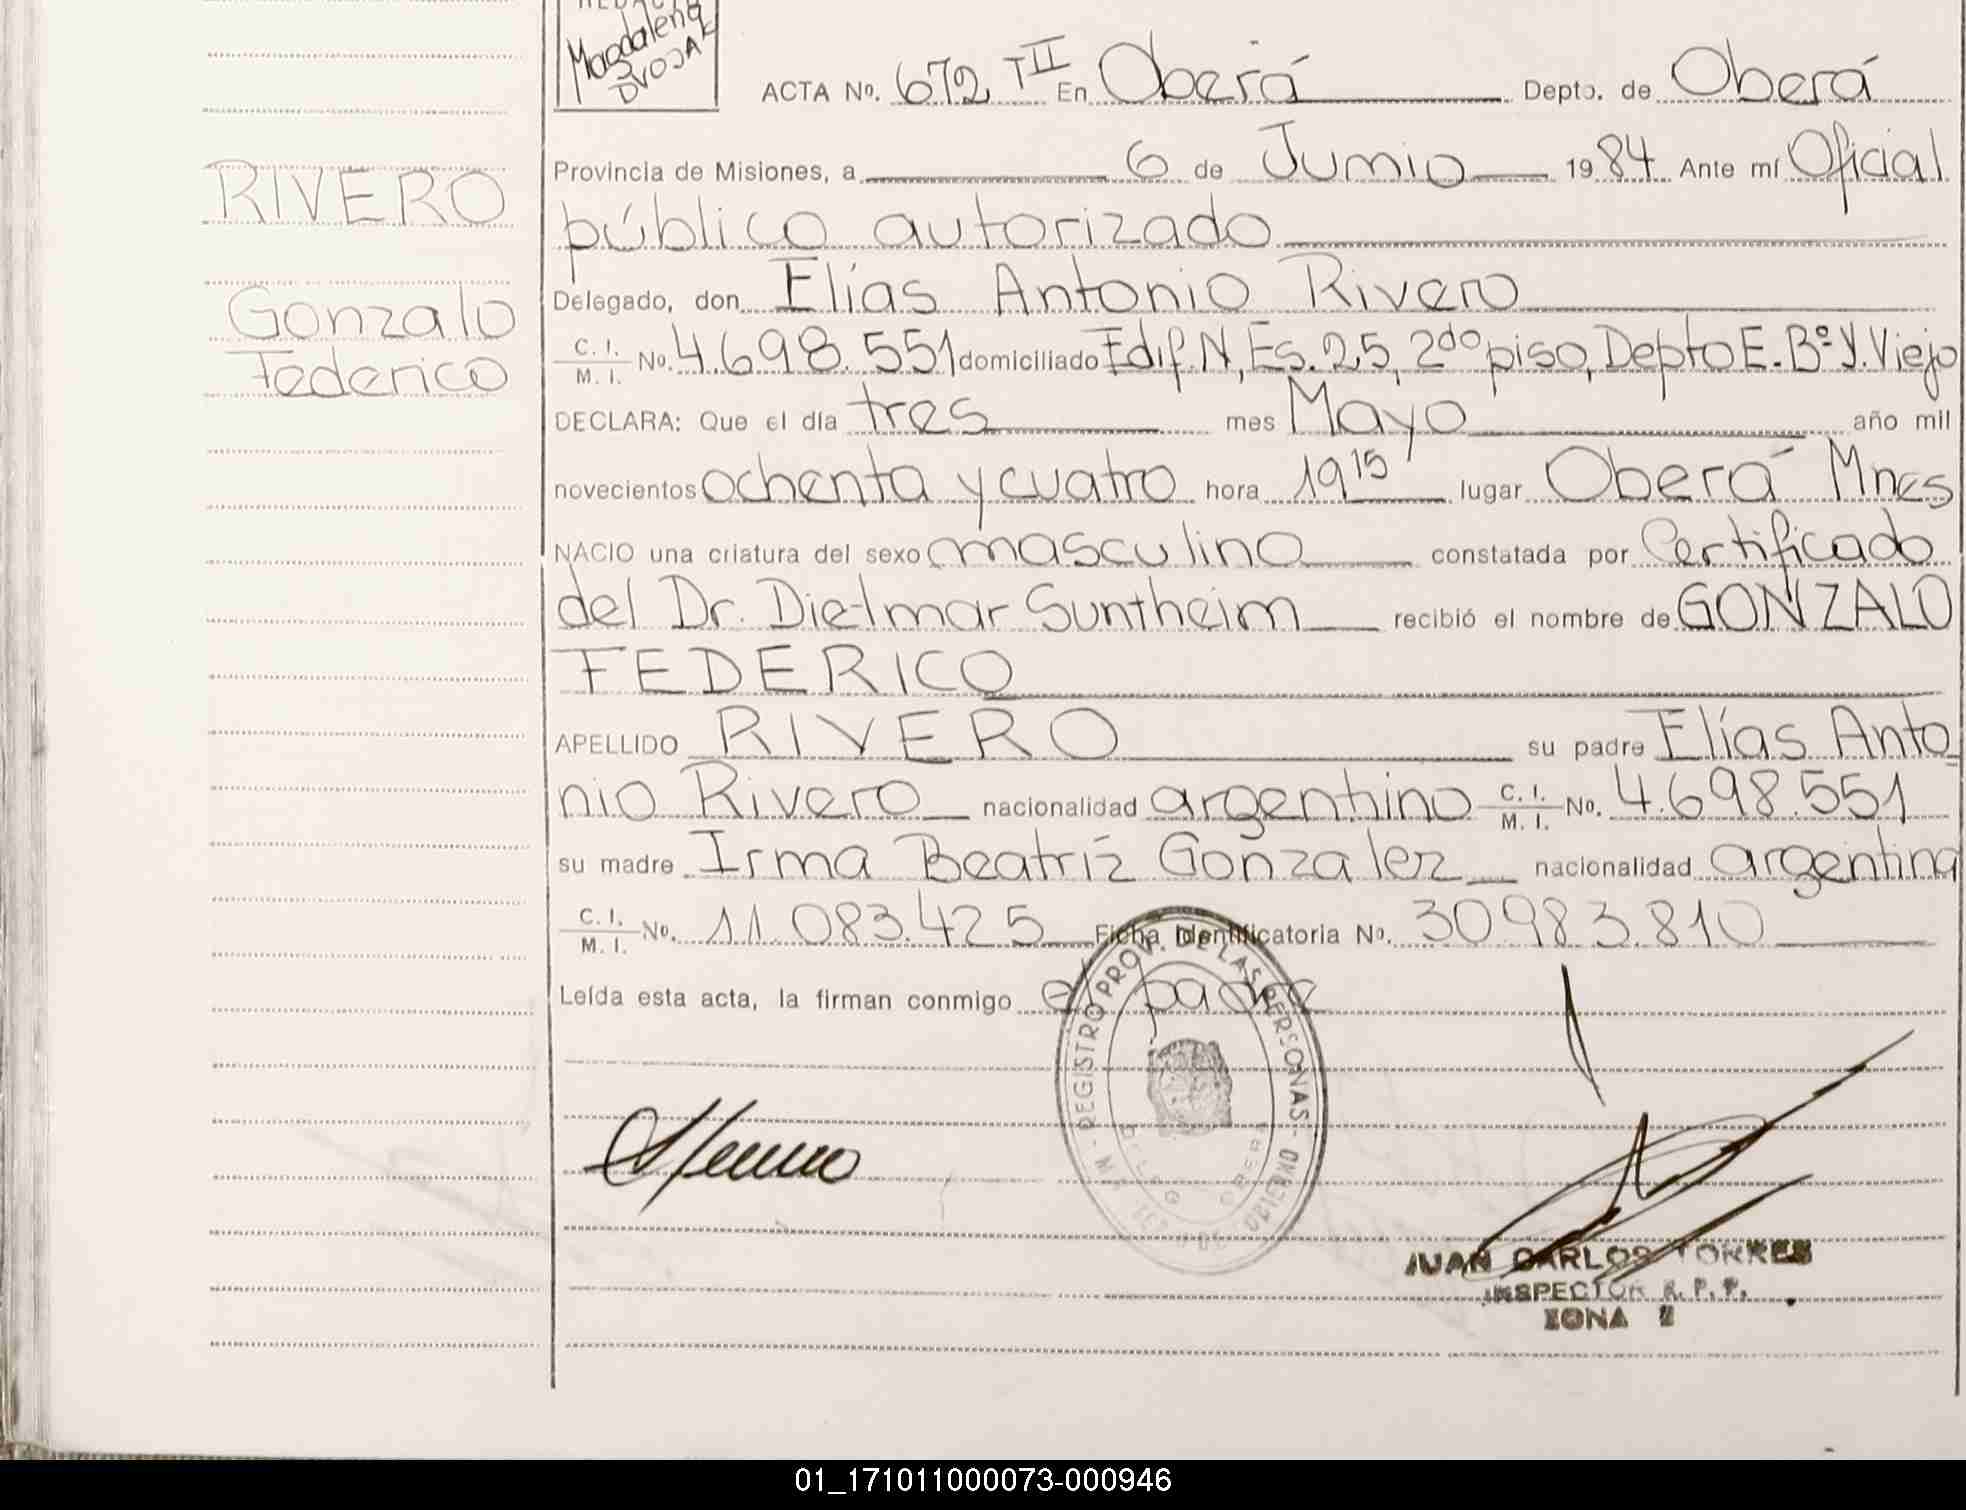 Magdalena
DVOJAK
ACTA Nº. 672 TII En Oberá Depto. de Oberá
RIVERO
Gonzalo
Federico
Provincia de Misiones, a 6 de Junio 1984 Ante mí Oficial
público autorizado
Delegado, don Elías Antonio Rivero
C. I. / M. I. Nº. 4.698.551 domiciliado Edif. N, Es. 25, 2do piso, Depto E. Bº V. Viejo
DECLARA: Que el día tres mes Mayo año mil
novecientos ochenta y cuatro hora 19 15 lugar Oberá Mnes
NACIO una criatura del sexo masculino constatada por Certificado
del Dr. Dietmar Suntheim recibió el nombre de GONZALO
FEDERICO
APELLIDO RIVERO su padre Elías Anto
nio Rivero nacionalidad argentino C. I. / M. I. Nº. 4.698.551
su madre Irma Beatríz Gonzalez nacionalidad argentina
C. I. / M. I. Nº. 11.083.425 Ficha Identificatoria Nº. 30983.810
Leída esta acta, la firman conmigo el padre
REGISTRO PROV. DE LAS PERSONAS
JUAN CARLOS TORRES
INSPECTOR R. P. P.
ZONA
01_171011000073-000946